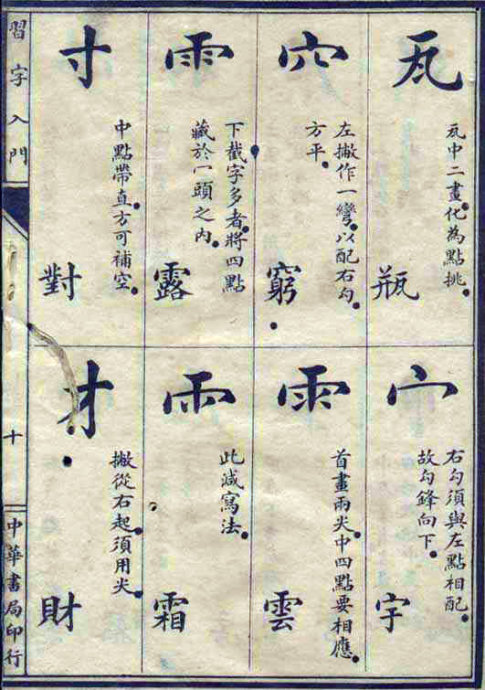 瓦
瓦中二畫化為點挑
瓶
穴
左撇作一彎以配右勾
方平
窮
雨
下截字多者將四點
藏於一頭之内
露
寸
中點帶直方可補空
對
宀
右勾須與左點相配
故勾鋒向下
字
雨
首畫兩尖中四點要相應
雲
雨
此減寫法
霜
才
撇從右起須用尖
財
習字入門
十
中華書局印行